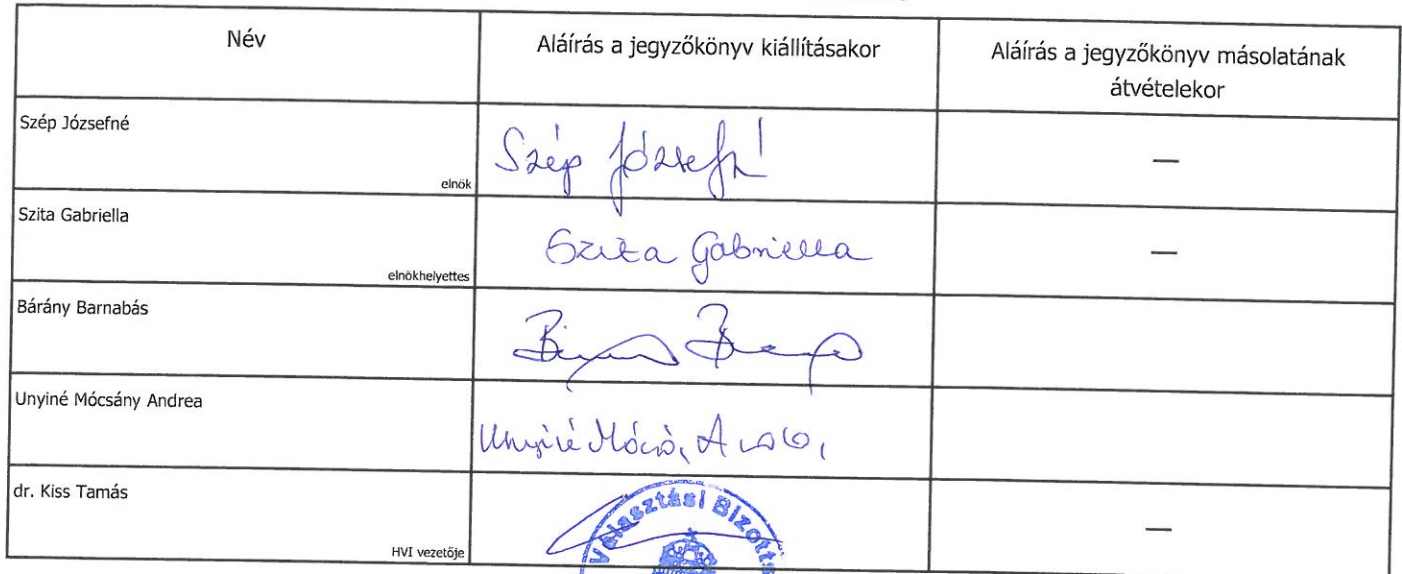 Név
Aláírás a jegyzőkönyv kiállításakor
Aláírás a jegyzőkönyv másolatának
átvételekor
Szép Józsefné
elnök
Szép Józsefné
—
Szita Gabriella
elnökhelyettes
Szita Gabriella
—
Bárány Barnabás
Unyiné Mócsány Andrea
Unyiné
dr. Kiss Tamás
HVI vezetője
Választási
—